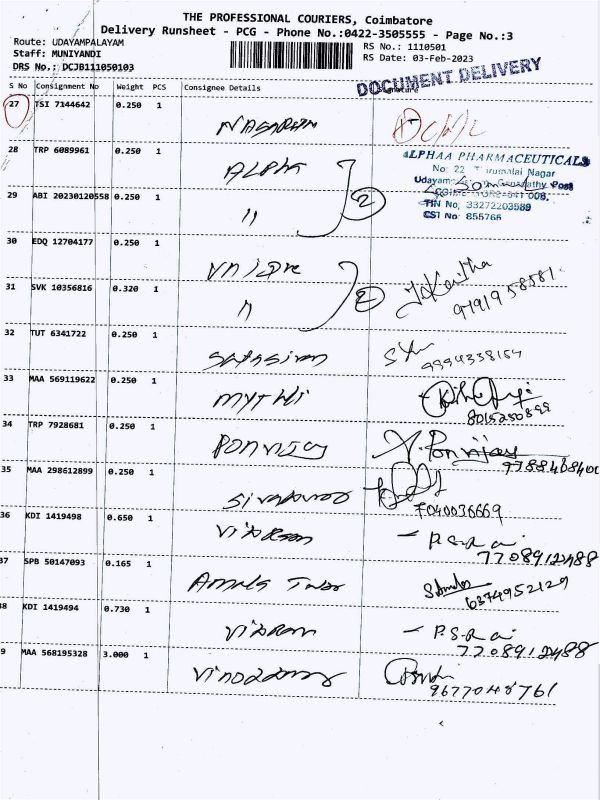 THE PROFESSIONAL COURIERS, Coimbatore
Delivery Runsheet - PCG - Phone No.:0422-3505555 - Page No.:3
Route: UDAYAMPALAYAM
Staff: MUNIYANDI
DRS No.: DCJB111050103
RS No.: 1110501
RS Date: 03-Feb-2023
DOCUMENT DELIVERY
S No Consignment No Weight PCS Consignee Details Signature
27 TSI 7144642 0.250 1
28 TRP 6089961 0.250 1 ALPHA
ALPHAA PHARMACEUTICALS
No: 22 Tirumalai Nagar
Post
TIN No; 33272203589
CST No: 855766
29 ABI 20230120558 0.250 1 " 2
30 EDQ 12704177 0.250 1
31 SVK 10356816 0.320 1 " 2
32 TUT 6341722 0.250 1
9994338154
33 MAA 569119622 0.250 1 MYTHI
8015250899
34 TRP 7928681 0.250 1 PONVIJAY Y. Ponvijay
35 MAA 298612899 0.250 1
7040036669
36 KDI 1419498 0.650 1 - P.S.R
7708912488
37 SPB 50147093 0.165 1
6374952129
38 KDI 1419494 0.730 1 VIKRAM - P.S.R
7708912488
39 MAA 568195328 3.000 1
9677048761